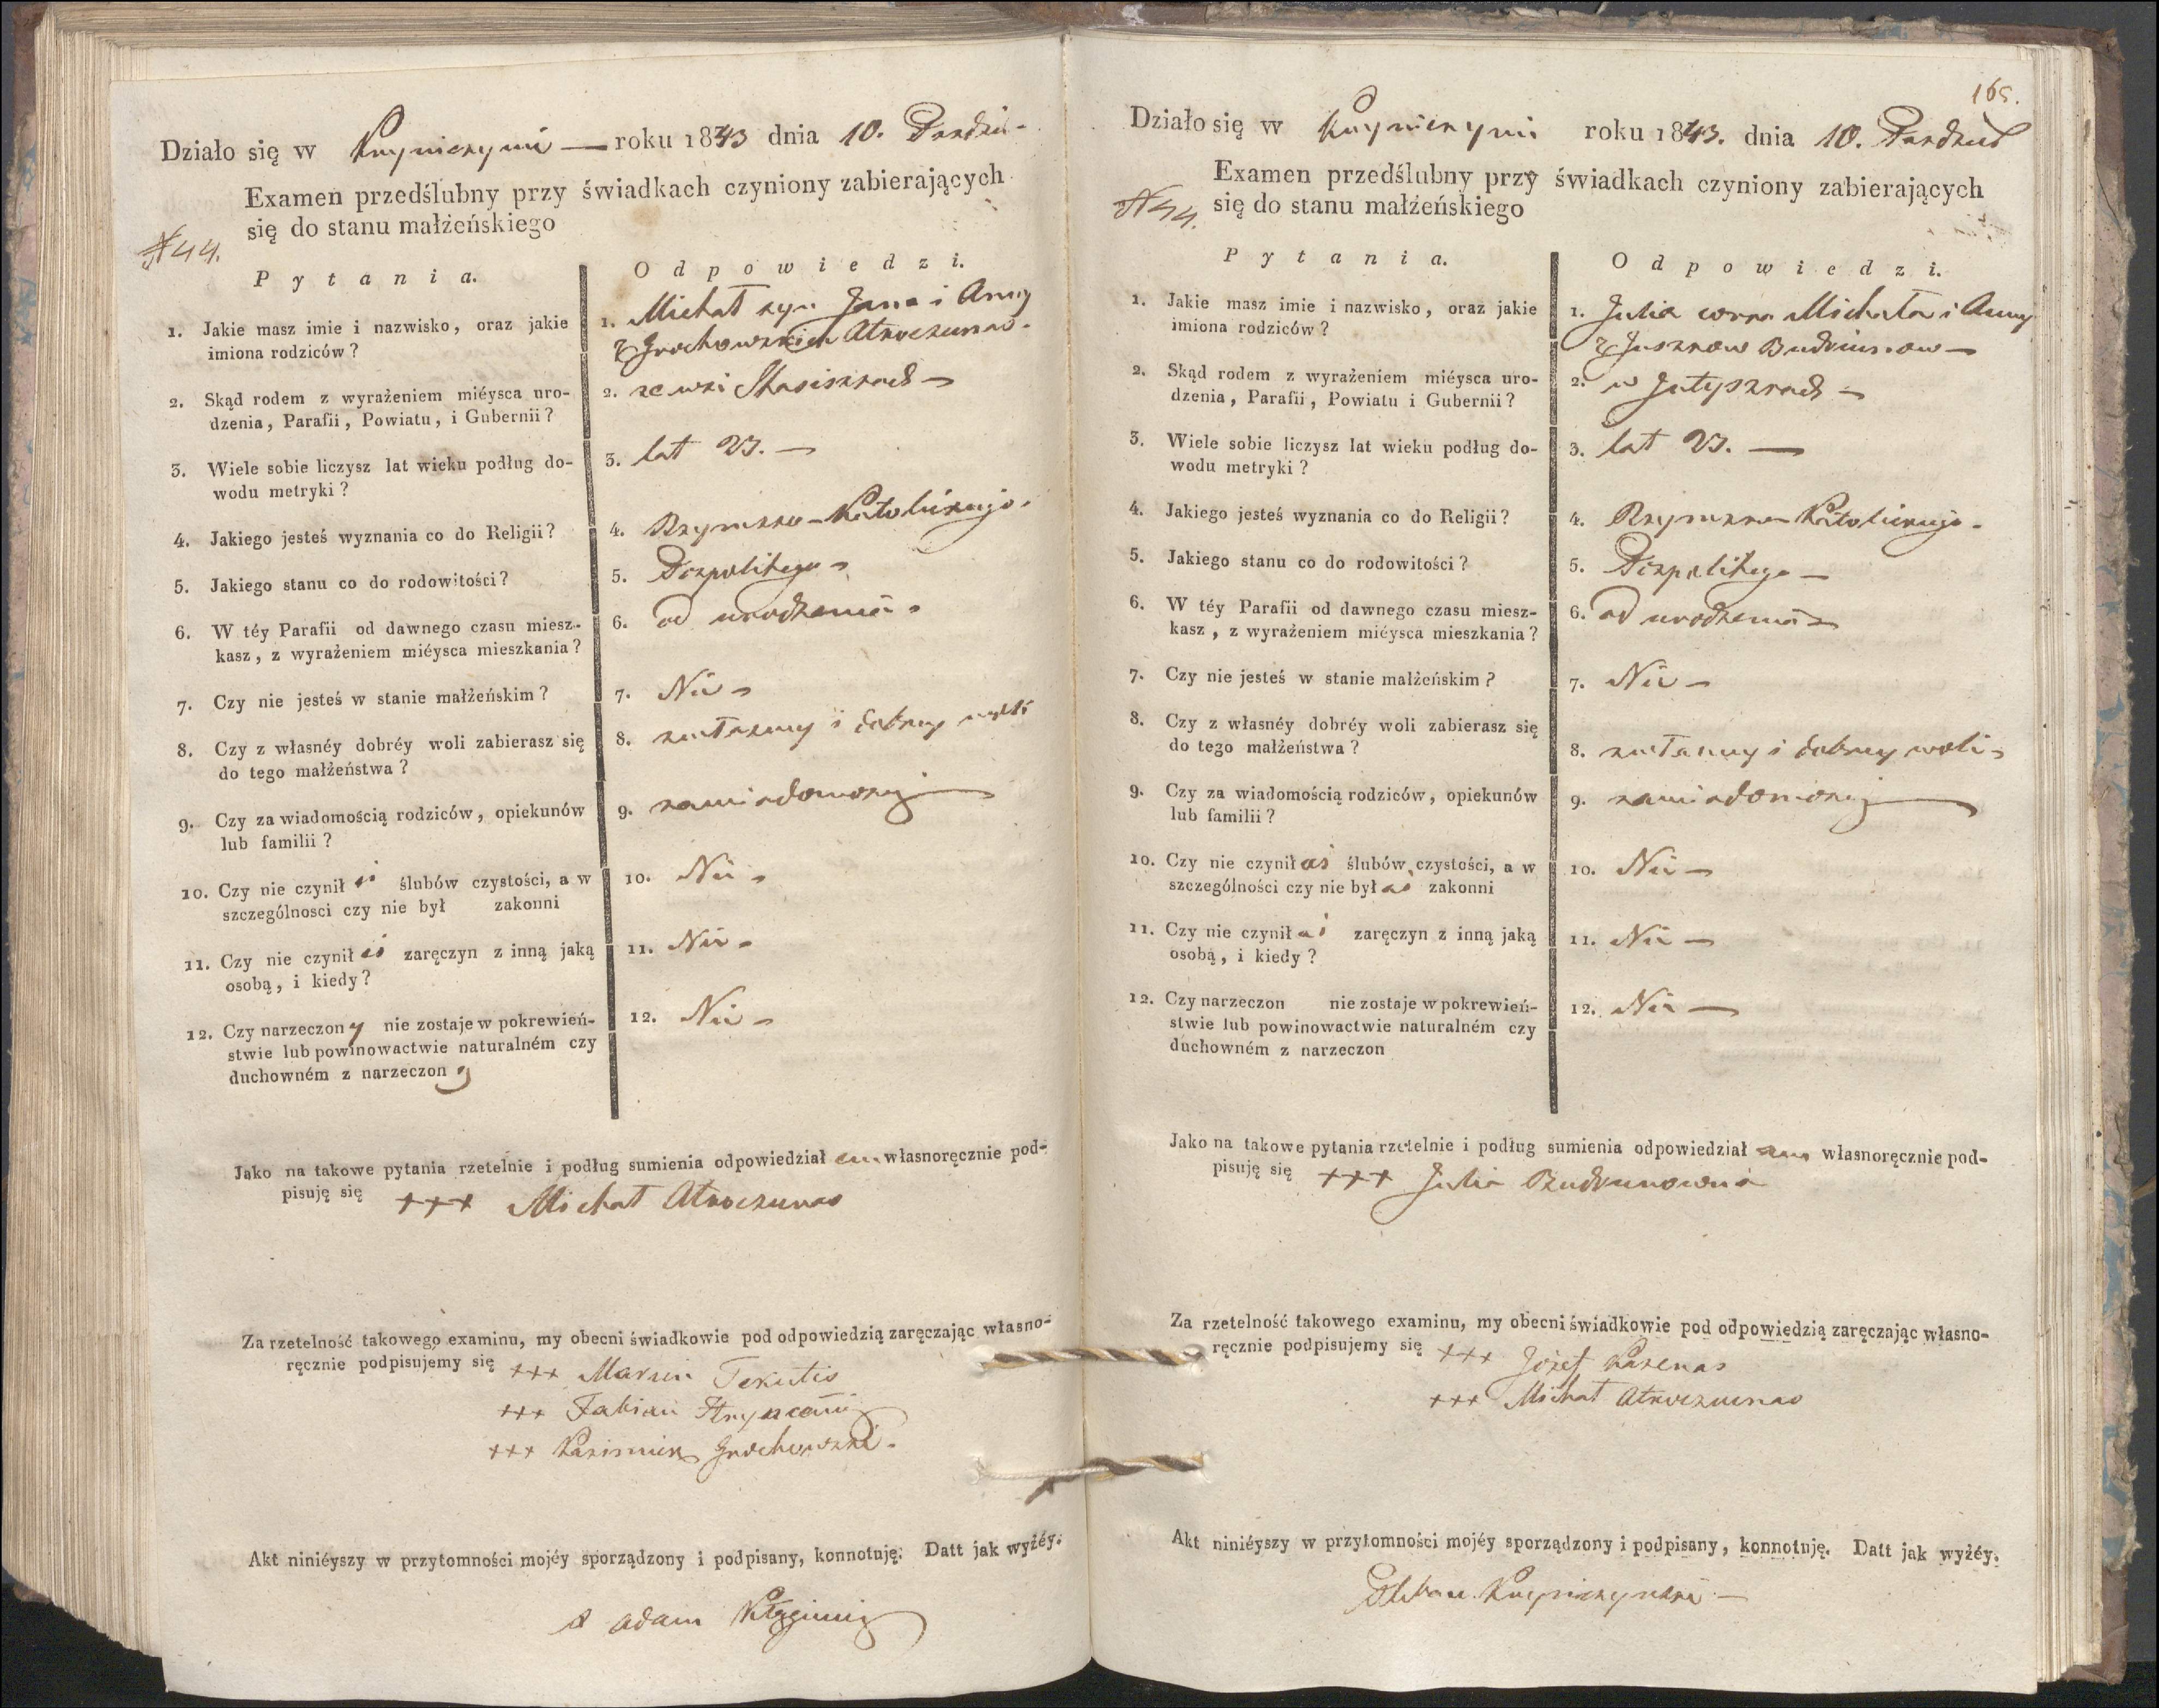 Działo się w Kryniczynie — roku 1843 dnia 10. Paździer-
Examen przedślubny przy świadkach czyniony zabierających
się do stanu małżeńskiego
N 44.
Pytania.
Odpowiedzi.
1. Jakie masz imie i nazwisko, oraz jakie
imiona rodziców?
1. Michał syn Jana i Anny
z Grochowskich Atroczunas.
2. Skąd rodem z wyrażeniem miéysca uro-
dzenia, Parafii, Powiatu, i Gubernii?
2. ze wsi
3. Wiele sobie liczysz lat wieku podług do-
wodu metryki?
3. lat 23. —
4. Jakiego jesteś wyznania co do Religii?
4. Rzymsko-Katolickiego.
5. Jakiego stanu co do rodowitości?
5. Pospolitego —
6. W téy Parafii od dawnego czasu miesz-
kasz, z wyrażeniem miéysca mieszkania?
6. od urodzenia —
7. Czy nie jesteś w stanie małżeńskim?
7. Nie —
8. Czy z własnéy dobréy woli zabierasz się
do tego małżeństwa?
8. z własney i dobrey woli
9. Czy za wiadomością rodziców, opiekunów
lub familii?
9. za wiadomością —
10. Czy nie czynił eś ślubów czystości, a w
szczególnosci czy nie był zakonni
10. Nie —
11. Czy nie czynił eś zaręczyn z inną jaką
osobą, i kiedy?
11. Nie —
12. Czy narzeczony nie zostaje w pokrewień-
stwie lub powinowactwie naturalném czy
duchowném z narzeczoną
12. Nie —
Jako na takowe pytania rzetelnie i podług sumienia odpowiedział em własnoręcznie pod-
pisuję się +++ Michał Atroczunas
Za rzetelność takowego examinu, my obecni świadkowie pod odpowiedzią zaręczając własno-
ręcznie podpisujemy się +++ Marcin Tekutis
+++ Fabian
+++ Kazimierz Grochowski.
Akt niniéyszy w przytomności mojéy sporządzony i podpisany, konnotuję. Datt jak wyżéy.
X Adam
165.
Działo się w Kryniczynie roku 1843. dnia 10. Paździer
Examen przedślubny przy świadkach czyniony zabierających
się do stanu małżeńskiego
N 44.
Pytania.
Odpowiedzi.
1. Jakie masz imie i nazwisko, oraz jakie
imiona rodziców?
1. Julia corka Michała i Anny
z Juszkow Budrunow —
2. Skąd rodem z wyrażeniem miéysca uro-
dzenia, Parafii, Powiatu i Gubernii?
2. w
3. Wiele sobie liczysz lat wieku podług do-
wodu metryki?
3. lat 23. —
4. Jakiego jesteś wyznania co do Religii?
4. Rzymsko Katolickiego.
5. Jakiego stanu co do rodowitości?
5. Pospolitego —
6. W téy Parafii od dawnego czasu miesz-
kasz, z wyrażeniem miéysca mieszkania?
6. od urodzenia —
7. Czy nie jesteś w stanie małżeńskim?
7. Nie —
8. Czy z własnéy dobréy woli zabierasz się
do tego małżeństwa?
8. z własney i dobrey woli —
9. Czy za wiadomością rodziców, opiekunów
lub familii?
9. za wiadomością —
10. Czy nie czynił aś ślubów czystości, a w
szczególności czy nie był aś zakonni
10. Nie —
11. Czy nie czynił aś zaręczyn z inną jaką
osobą, i kiedy?
11. Nie —
12. Czy narzeczon nie zostaje w pokrewień-
stwie lub powinowactwie naturalném czy
duchowném z narzeczon
12. Nie —
Jako na takowe pytania rzetelnie i podług sumienia odpowiedział am własnoręcznie pod-
pisuję się +++ Julia Budrunowna
Za rzetelność takowego examinu, my obecni świadkowie pod odpowiedzią zaręczając własno-
ręcznie podpisujemy się +++ Józef Kazenas
+++ Michał Atroczunas
Akt niniéyszy w przytomności mojéy sporządzony i podpisany, konnotuję. Datt jak wyżéy.
Pleban Kryniczynski —